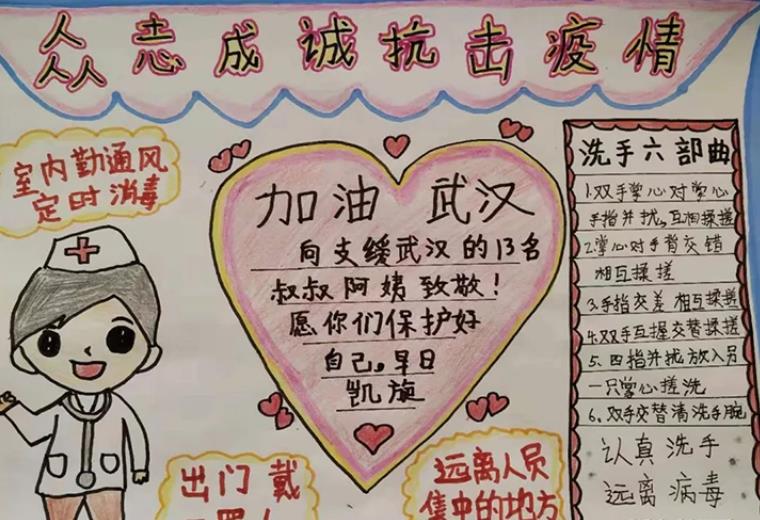 众志成诚抗击疫情
室内勤通风
定时消毒
加油 武汉
向支缓武汉的13名
叔叔阿姨致敬！
愿你们保护好
自己,早日
凯旋
洗手六部曲
1.双手掌心对掌心
手指并扰,互相揉搓
2.掌心对手背交错
相互揉搓
3.手指交差 相互揉搓
4.双手互握交替揉搓
5.四指并扰放入员
一只掌心搓洗
6.双手交替清洗手腕
认真洗手
远离病毒
出门 戴
远离人员
集中的地方